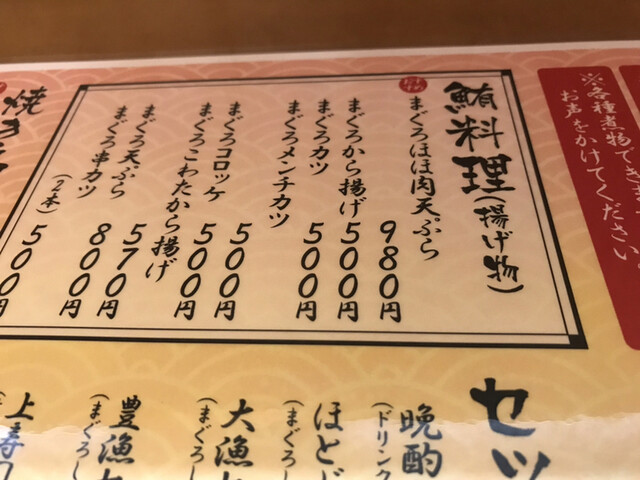 ※各種煮物でき
お声をかけてください
おすすめ
鮪料理(揚げ物)
まぐろほほ肉天ぷら 980円
まぐろから揚げ 500円
まぐろカツ 500円
まぐろメンチカツ 500円
まぐろコロッケ 500円
まぐろこわたから揚げ 570円
まぐろ天ぷら 800円
まぐろ串カツ(2本) 500円
焼き
セッ
晩酌
(ドリンク
ほとど
(まぐろし
大漁
(まぐろし
豊漁
(まぐろし
上寿